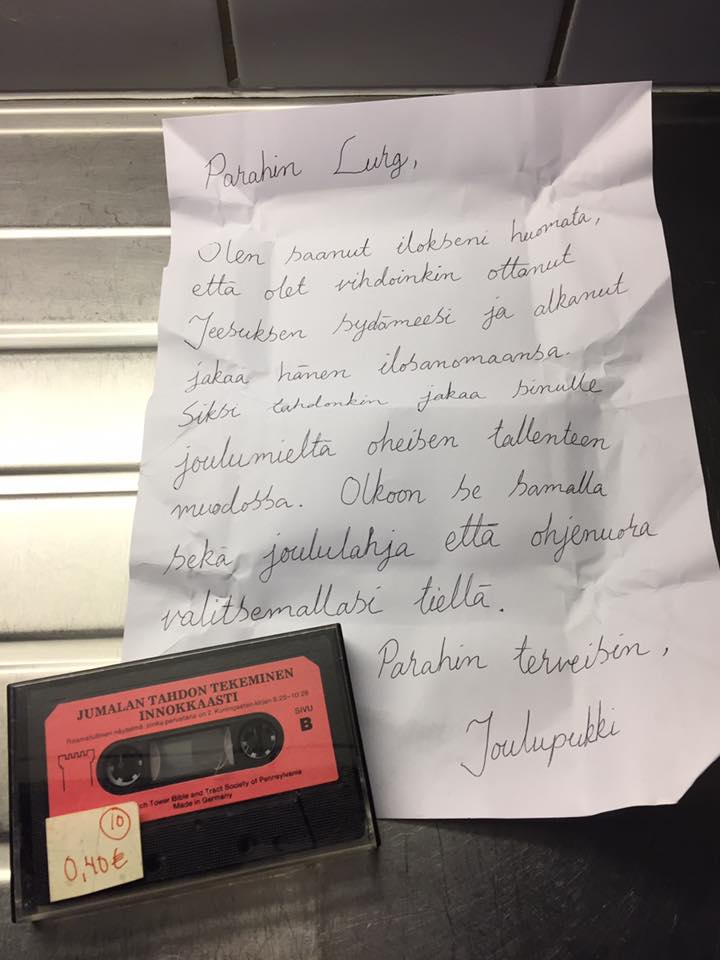 Parahin Lurg,
Olen saanut ilokseni huomata,
että olet vihdoinkin ottanut
Jeesuksen sydämeesi ja alkanut
jakaa hänen ilosanomaansa.
Siksi tahdonkin jakaa sinulle
joulumieltä oheisen tallenteen
muodossa. Olkoon se samalla
sekä joululahja että ohjenuora
valitsemallasi tiellä.
Parahin terveisin,
Joulupukki
JUMALAN TAHDON TEKEMINEN
INNOKKAASTI
Raamatullinen näytelmä, jonka perustana on 2. Kuningasten kirjan
SIVU
B
ch Tower Bible and Tract Society of Pennsylvania
Made in Germany
10
0,40€